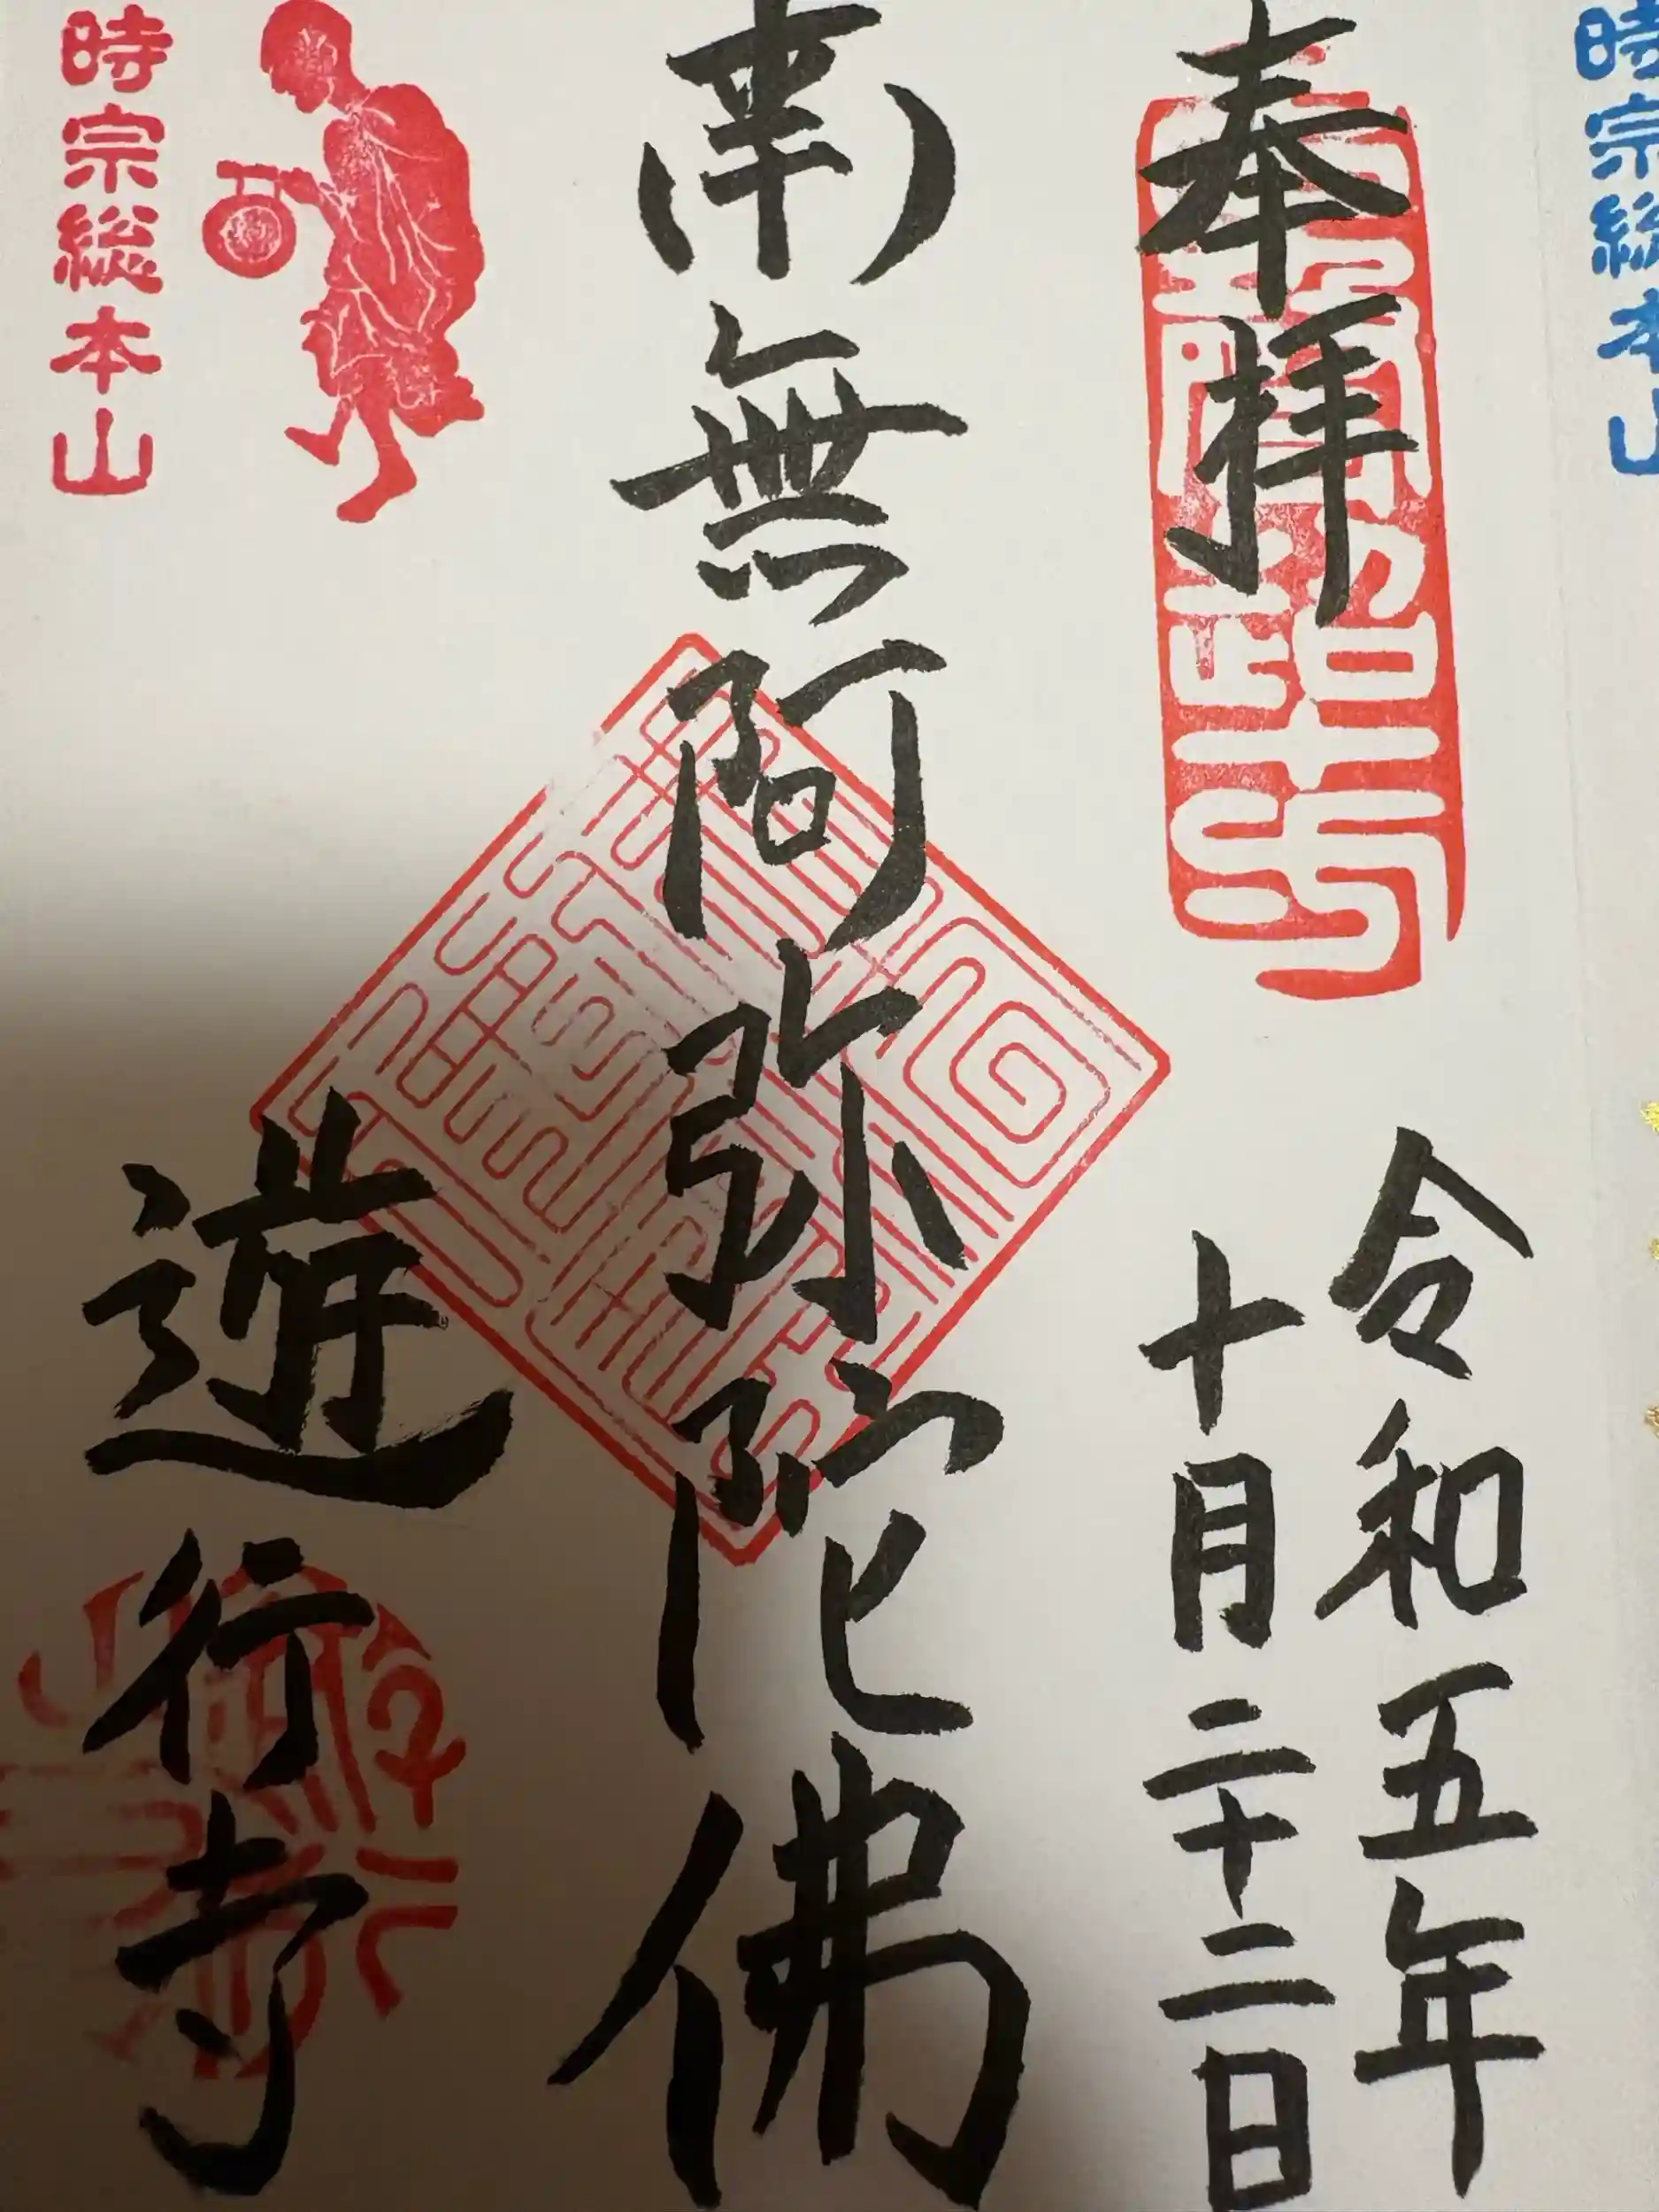 奉拝
令和五年
十月二十二日
南無阿弥陀佛
遊行寺
時宗総本山
時宗総本山